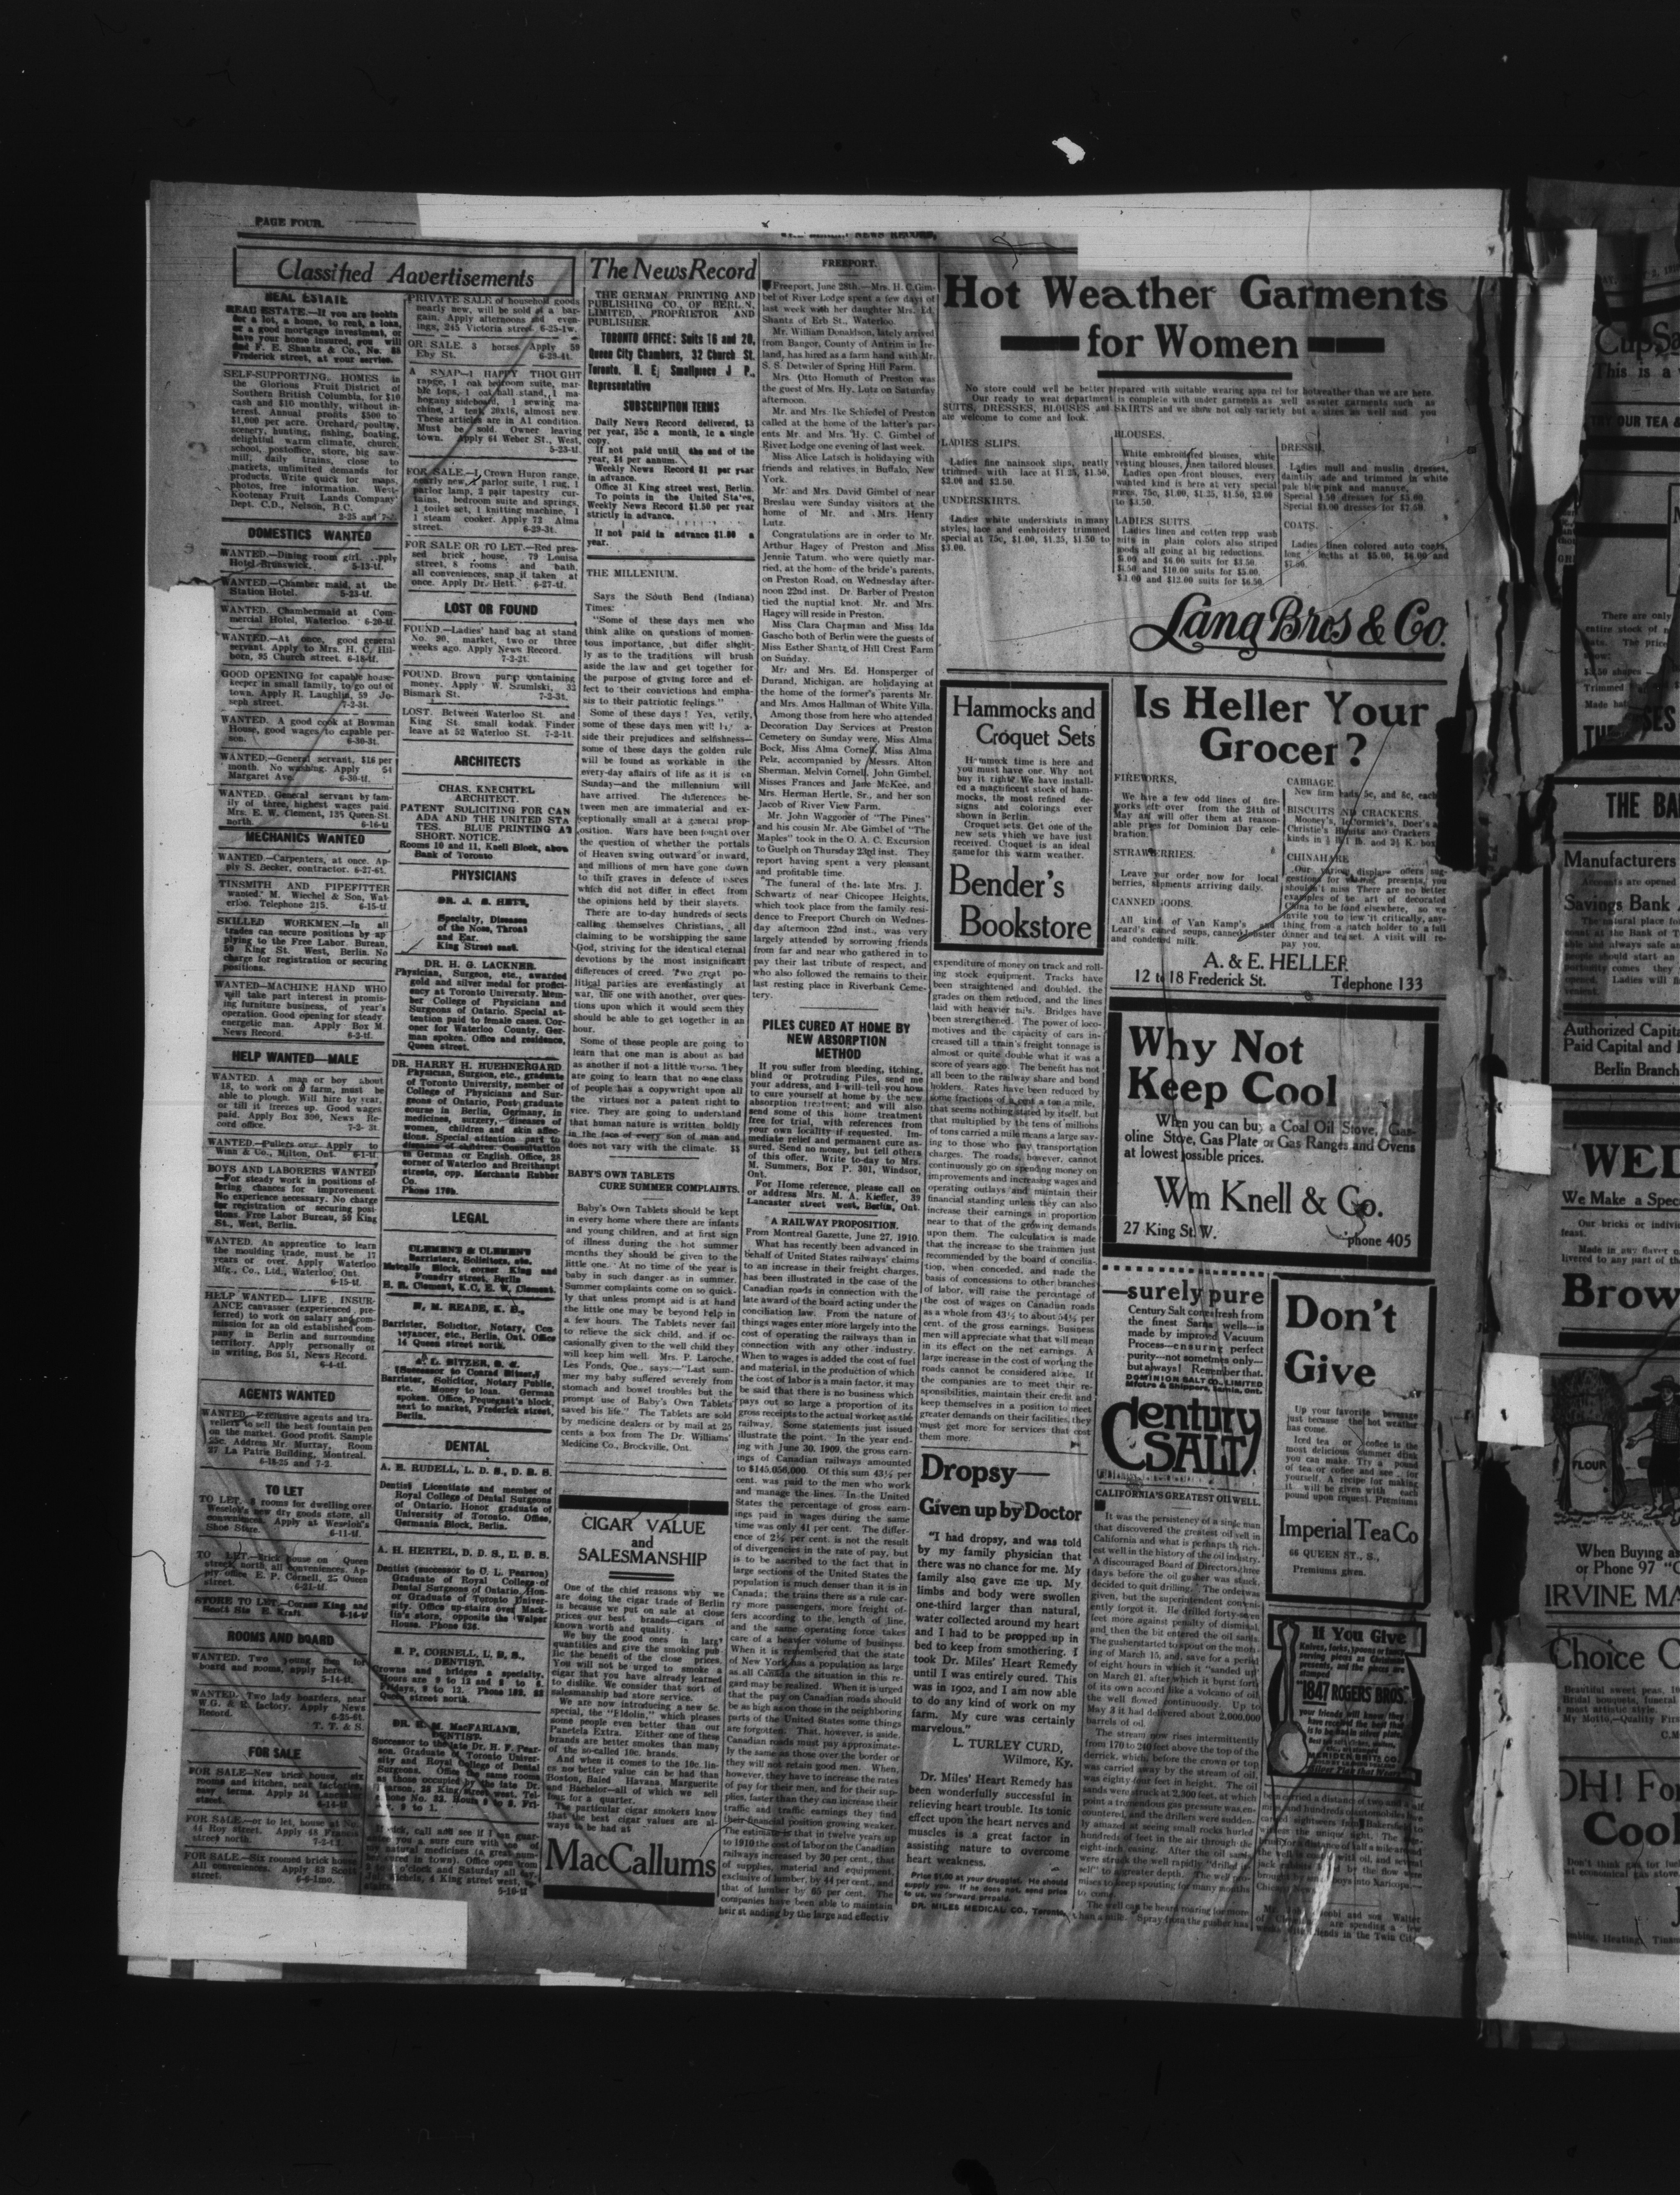 PAGE FOUR.
Classified Advertisements
REAL ESTATE
REAL ESTATE.—If you are lookin
for a lot, a home, to rent, a loan,
or a good mortgage investment, or
have your home insured, you will
find F. E. Shantz & Co., No. 88
Frederick street, at your service.
SELF-SUPPORTING HOMES in
the Glorious Fruit District of
Southern British Columbia, for $10
cash and $10 monthly, without in-
terest. Annual profits $500 to
$1,000 per acre. Orchard, poultry,
scenery, hunting, fishing, boating,
delightful warm climate, church,
school, postoffice, store, big saw-
mill, daily trains, close to
markets, unlimited demands for
products. Write quick for maps,
photos, free information. West-
Kootenay Fruit Lands Company
Dept. C.D., Nelson, B.C.
DOMESTICS WANTED
WANTED.—Dining room girl.
Hotel Brunswick. 5-13-tf.
WANTED.—Chamber maid, at the
Station Hotel. 5-23-tf.
WANTED. Chambermaid at Com-
mercial Hotel, Waterloo. 6-20-tf.
WANTED.—At once, good general
servant. Apply to Mrs. H. C. Hil-
born, 95 Church street. 6-18-tf.
GOOD OPENING for capable house-
keeper in small family, to go out of
town. Apply R. Laughlin, 59 Jo-
seph street. 7-2-3t.
WANTED. A good cook at Bowman
House, good wages to capable per-
son. 6-30-3t.
WANTED.—General servant, $16 per
month. No washing. Apply 54
Margaret Ave. 6-30-tf.
WANTED. General servant by fam-
ily of three, highest wages paid.
Mrs. E. W. Clement, 135 Queen St.
north. 6-16-tf
MECHANICS WANTED
WANTED.—Carpenters, at once. Ap-
ply S. Becker, contractor. 6-27-6t.
TINSMITH AND PIPEFITTER
wanted. M. Wiechel & Son, Wat-
erloo. Telephone 215. 6-15-tf.
SKILLED WORKMEN.—In all
trades can secure positions by ap
plying to the Free Labor. Bureau,
59 King St. West, Berlin. No
charge for registration or securing
positions.
WANTED—MACHINE HAND WHO
will take part interest in promis-
ing furniture business, of year's
operation. Good opening for steady
energetic man. Apply Box M.
News Record. 6-2-tf.
HELP WANTED—MALE
WANTED. A man or boy about
18, to work on a farm, must be
able to plough. Will hire by year,
or till it freezes up. Good wages
paid. Apply Box 390, News Re-
cord office. 7-2- 3t.
WANTED.—Pullers over. Apply to
Winn & Co., Milton, Ont. 6-1-tf.
BOYS AND LABORERS WANTED
—For steady work in positions of-
fering chances for improvement.
No experience necessary. No charge
for registration or securing posi-
tions. Free Labor Bureau, 59 King
St., West, Berlin.
WANTED. An apprentice to learn
the moulding trade, must be 17
years of over. Apply Waterloo
Mfg., Co., Ltd., Waterloo, Ont.
6-15-tf.
HELP WANTED— LIFE INSUR-
ANCE canvasser (experienced pre-
ferred) to work on salary and com-
mission for an old established com-
pany in Berlin and surrounding
territory. Apply personally or
in writing, Box 51, News Record.
6-4-tf.
AGENTS WANTED
WANTED—Exclusive agents and tra-
vellers to sell the best fountain pen
on the market. Good profit. Sample
25c. Address Mr. Murray, Room
27 La Patrie Building, Montreal.
6-18-25 and 7-2.
TO LET
TO LET. 8 rooms for dwelling over
Weseloh's new dry goods store, all
conveniences. Apply at Weseloh's
Shoe Store. 6-11-tf.
TO LET.—Brick house on Queen
street, north, all conveniences. Ap-
ply office E. P. Cornell, 25 Queen
street. 6-21-tf.
STORE TO LET.—Corner King and
Scott Sts. E. Kraft. 6-14-tf
ROOMS AND BOARD
WANTED. Two young men for
board and rooms, apply here.
5-14-tf.
WANTED. Two lady boarders, near
W.G. & E. factory. Apply News
Record. 6-25-6t.
T. T. & S.
FOR SALE
FOR SALE—New brick house, six
rooms and kitchen, near factories,
easy terms. Apply 34 Lancaster
street. 6-14-tf
FOR SALE.—or to let, house at No.
44 Roy street. Apply 48 Francis
street north. 7-2-1t.
FOR SALE.—Six roomed brick house
All conveniences. Apply 83 Scott
St. 6-6-1mo.
PRIVATE SALE of household goods
nearly new, will be sold at a bar-
gain. Apply afternoons and even-
ings, 245 Victoria street. 6-25-1w.
FOR SALE. 3 horses. Apply 59
Eby St. 6-29-4t.
A SNAP—1 HAPPY THOUGHT
range, 1 oak bedroom suite, mar-
ble tops, 1 oak hall stand, 1 ma-
hogany sideboard, 1 sewing ma-
chine, 1 tent 20x16, almost new.
These articles are in A1 condition.
Must be sold. Owner leaving
town. Apply 64 Weber St., West.
5-23-tf.
FOR SALE.—1 Crown Huron range,
nearly new, 1 parlor suite, 1 rug, 1
parlor lamp, 2 pair tapestry cur-
tains, bedroom suite and springs,
1 toilet set, 1 knitting machine, 1
steam cooker. Apply 72 Alma
street. 6-29-3t.
FOR SALE OR TO LET.—Red pres-
sed brick house, 79 Louisa
street, 8 rooms and bath,
all conveniences, snap if taken at
once. Apply Dr. Hett. 6-27-tf.
LOST OR FOUND
FOUND.—Ladies' hand bag at stand
No. 90, market, two or three
weeks ago. Apply News Record.
7-2-2t.
FOUND. Brown purse containing
money. Apply W. Szumlski, 32
Bismark St. 7-2-3t.
LOST. Between Waterloo St. and
King St. small kodak. Finder
leave at 52 Waterloo St. 7-2-1t.
ARCHITECTS
CHAS. KNECHTEL
ARCHITECT.
PATENT SOLICITING FOR CAN
ADA AND THE UNITED STA
TES. BLUE PRINTING AT
SHORT NOTICE.
Rooms 10 and 11, Knell Block, above
Bank of Toronto
PHYSICIANS
DR. J. E. HETT,
Specialty, Diseases
of the Nose, Throat
and Ear.
King Street east.
DR. H. G. LACKNER.
Physician, Surgeon, etc., awarded
gold and silver medal for profici-
ency at Toronto University. Mem-
ber College of Physicians and
Surgeons of Ontario. Special at-
tention paid to female cases. Cor-
oner for Waterloo County. Ger-
man spoken. Office and residence,
Queen street.
DR. HARRY H. HUEHNERGARD
Physician, Surgeon, etc., graduate
of Toronto University, member of
College of Physicians and Sur-
geons of Ontario, Post-graduate
course in Berlin, Germany, in
medicines, surgery, diseases of
women, children and skin affec-
tions. Special attention part to
diseases of children. Consultation
in German or English. Office, 28
corner of Waterloo and Breithaupt
streets, opp. Merchants Rubber
Co.
Phone 179b.
LEGAL
CLEMENT & CLEMENT
Barristers, Solicitors, etc.
Metcalfe Block, corner King and
Foundry street, Berlin
H. R. Clement, K.C. E. W. Clement.
W. M. READE, K. C.,
Barrister, Solicitor, Notary, Con-
veyancer, etc., Berlin, Ont. Office
14 Queen street north.
A. L. BITZER, B. A.
(Successor to Conrad Bitzer,)
Barrister, Solicitor, Notary Public,
etc. Money to loan. German
spoken. Office, Pequegnat's block,
next to market, Frederick street,
Berlin.
DENTAL
A. B. RUDELL, L. D. S., D. D. S.
Dentist Licentiate and member of
Royal College of Dental Surgeons
of Ontario. Honor graduate of
University of Toronto. Office,
Germania Block, Berlin.
A. H. HERTEL, D. D. S., L. D. S.
Dentist (successor to U. L. Pearson)
Graduate of Royal College of
Dental Surgeons of Ontario, Hon-
or Graduate of Toronto Univer-
sity. Office up-stairs over Mack-
lin's store, opposite the Walper
House. Phone 624.
E. P. CORNELL, L. D. S.,
DENTIST.
Crowns and bridges a specialty.
Hours are 9 to 12 and 2 to 5.
Fridays, 9 to 12. Phone 182. 25
Queen street north.
DR. H. M. MacFARLANE,
DENTIST.
Successor to the late Dr. H. F. Pear-
son. Graduate of Toronto Univer-
sity and Royal College of Dental
Surgeons. Office the same rooms
as those occupied by the late Dr.
Pearson, 28 King street west. Tel-
phone No. 23.
The News Record
THE GERMAN PRINTING AND
PUBLISHING CO., OF BERLIN,
LIMITED, PROPRIETOR AND
PUBLISHER.
TORONTO OFFICE: Suits 16 and 20,
Queen City Chambers, 32 Church St.
Toronto. H. E. Smallpiece J. P.,
Representative
SUBSCRIPTION TERMS
Daily News Record delivered, $3
per year, 25c a month, 1c a single
copy.
If not paid until the end of the
year, $4 per annum.
Weekly News Record $1 per year
in advance.
Office 31 King street west, Berlin.
To points in the United States,
Weekly News Record $1.50 per year
strictly in advance.
If not paid in advance $1.50 a
year.
THE MILLENIUM.
Says the South Bend (Indiana)
Times:
"Some of these days men who
think alike on questions of momen-
tous importance, but differ slight-
ly as to the traditions will brush
aside the law and get together for
the purpose of giving force and ef-
fect to their convictions and empha-
sis to their patriotic feelings."
Some of these days! Yes, verily,
some of these days men will lay a-
side their prejudices and selfishness—
some of these days the golden rule
will be found as workable in the
every-day affairs of life as it is on
Sunday—and the millennium will
have arrived. The differences be-
tween men are immaterial and ex-
ceptionally small at a general prop-
osition. Wars have been fought over
the question of whether the portals
of Heaven swing outward or inward,
and millions of men have gone down
to their graves in defence of issues
which did not differ in effect from
the opinions held by their slayers.
There are to-day hundreds of sects
calling themselves Christians, all
claiming to be worshipping the same
God, striving for the identical eternal
devotions by the most insignificant
differences of creed. Two great po-
litical parties are everlastingly at
war, the one with another, over ques-
tions upon which it would seem they
should be able to get together in an
hour.
Some of these people are going to
learn that one man is about as bad
as another if not a little worse. They
are going to learn that no one class
of people has a copyright upon all
the virtues nor a patent right to
vice. They are going to understand
that human nature is written boldly
in the face of every son of man and
does not vary with the climate. $$
BABY'S OWN TABLETS
CURE SUMMER COMPLAINTS.
Baby's Own Tablets should be kept
in every home where there are infants
and young children, and at first sign
of illness during the hot summer
months they should be given to the
little one. At no time of the year is
baby in such danger as in summer.
Summer complaints come on so quick-
ly that unless prompt aid is at hand
the little one may be beyond help in
a few hours. The Tablets never fail
to relieve the sick child, and if oc-
casionally given to the well child they
will keep him well. Mrs. P. Laroche,
Les Fonds, Que., says:—"Last sum-
mer my baby suffered severely from
stomach and bowel troubles but the
prompt use of Baby's Own Tablets
saved his life." The Tablets are sold
by medicine dealers or by mail at 25
cents a box from The Dr. Williams'
Medicine Co., Brockville, Ont.
CIGAR VALUE
and
SALESMANSHIP
One of the chief reasons why we
are doing the cigar trade of Berlin
is because we put on sale at close
prices our best brands—cigars of
known worth and quality.
We buy the good ones in larg
quantities and give the smoking pub-
lic the benefit of the close prices.
You will not be urged to smoke a
cigar that you have already learned
to dislike. We consider that sort of
salesmanship bad store service.
We are now introducing a new 5c.
special, the "Eldolin," which pleases
some people even better than our
Panetela Extra. Either one of these
brands are better smokes than many
of the so-called 10c. brands.
And when it comes to the 10c. lin-
es no better value can be had than
Boston, Baled Havana, Marguerite
and Bachelor—all of which we sell
four for a quarter.
The particular cigar smokers know
that the best cigar values are al-
ways to be had at
MacCallums
FREEPORT.
Freeport, June 28th.—Mrs. H. C. Gim-
bel of River Lodge spent a few days of
last week with her daughter Mrs. Ed.
Shantz of Erb St., Waterloo.
Mr. William Donaldson, lately arrived
from Bangor, County of Antrim in Ire-
land, has hired as a farm hand with Mr.
S. S. Detwiler of Spring Hill Farm.
Mrs. Otto Homuth of Preston was
the guest of Mrs. Hy. Lutz on Saturday
afternoon.
Mr. and Mrs. Ike Schiedel of Preston
called at the home of the latter's par-
ents Mr. and Mrs. Hy. C. Gimbel of
River Lodge one evening of last week.
Miss Alice Latsch is holidaying with
friends and relatives, in Buffalo, New
York.
Mr. and Mrs. David Gimbel of near
Breslau were Sunday visitors at the
home of Mr. and Mrs. Henry
Lutz.
Congratulations are in order to Mr.
Arthur Hagey of Preston and Miss
Jennie Tatum, who were quietly mar-
ried, at the home of the bride's parents,
on Preston Road, on Wednesday after-
noon 22nd inst. Dr. Barber of Preston
tied the nuptial knot. Mr. and Mrs.
Hagey will reside in Preston.
Miss Clara Chapman and Miss Ida
Gascho both of Berlin were the guests of
Miss Esther Shantz of Hill Crest Farm
on Sunday.
Mr. and Mrs. Ed. Honsperger of
Durand, Michigan, are holidaying at
the home of the former's parents Mr.
and Mrs. Amos Hallman of White Villa.
Among those from here who attended
Decoration Day Services at Preston
Cemetery on Sunday were, Miss Alma
Bock, Miss Alma Cornell, Miss Alma
Pelz, accompanied by Messrs. Alton
Sherman, Melvin Cornell, John Gimbel,
Misses Frances and Jane McKee, and
Mrs. Herman Hertle, Sr., and her son
Jacob of River View Farm.
Mr. John Waggoner of "The Pines"
and his cousin Mr. Abe Gimbel of "The
Maples" took in the O. A. C. Excursion
to Guelph on Thursday 23rd inst. They
report having spent a very pleasant
and profitable time.
The funeral of the late Mrs. J.
Schwartz of near Chicopee Heights,
which took place from the family resi-
dence to Freeport Church on Wednes-
day afternoon 22nd inst., was very
largely attended by sorrowing friends
from far and near who gathered in to
pay their last tribute of respect, and
who also followed the remains to their
last resting place in Riverbank Ceme-
tery.
PILES CURED AT HOME BY
NEW ABSORPTION
METHOD
If you suffer from bleeding, itching,
blind or protruding Piles, send me
your address, and I will tell you how
to cure yourself at home by the new
absorption treatment; and will also
send some of this home treatment
free for trial, with references from
your own locality if requested. Im-
mediate relief and permanent cure as-
sured. Send no money, but tell others
of this offer. Write to-day to Mrs.
M. Summers, Box P. 301, Windsor,
Ont.
For Home reference, please call on
or address Mrs. M. A. Kiefler, 39
Lancaster street west, Berlin, Ont.
A RAILWAY PROPOSITION.
From Montreal Gazette, June 27, 1910.
What has recently been advanced in
behalf of United States railways' claims
to an increase in their freight charges,
has been illustrated in the case of the
Canadian roads in connection with the
late award of the board acting under the
conciliation law. From the nature of
things wages enter more largely into the
cost of operating the railways than in
connection with any other industry.
When to wages is added the cost of fuel
and material, in the production of which
the cost of labor is a main factor, it may
be said that there is no business which
pays out so large a proportion of its
gross receipts to the actual worker as the
railway. Some statements just issued
illustrate the point. In the year end-
ing with June 30, 1909, the gross earn-
ings of Canadian railways amounted
to $145,056,000. Of this sum 43½ per
cent. was paid to the men who work
and manage the lines. In the United
States the percentage of gross earn-
ings paid in wages during the same
time was only 41 per cent. The differ-
ence of 2½ per cent. is not the result
of divergencies in the rate of pay, but
is to be ascribed to the fact that in
large sections of the United States the
population is much denser than it is in
Canada; the trains there as a rule car-
ry more passengers, more freight of-
fers according to the length of line,
and the same operating force takes
care of a heavier volume of business.
When it is remembered that the state
of New York has a population as large
as all Canada the situation in this re-
gard may be realized. When it is urged
that the pay on Canadian roads should
be as high as on those in the neighboring
parts of the United States some things
are forgotten. That, however, is aside.
Canadian roads must pay approximate-
ly the same as those over the border or
they will not retain good men. When,
however, they have to increase the rates
of pay for their men, and for their sup-
plies, faster than they can increase their
traffic and traffic earnings they find
their financial position growing weaker.
The estimate is that in twelve years up
to 1910 the cost of labor on the Canadian
railways increased by 30 per cent., that
of supplies, material and equipment,
exclusive of lumber, by 44 per cent., and
that of lumber by 65 per cent. The
companies have been able to maintain
heir st anding by the large and effectiv
expenditure of money on track and roll-
ing stock equipment. Tracks have
been straightened and doubled, the
grades on them reduced, and the lines
laid with heavier rails. Bridges have
been strengthened. The power of loco-
motives and the capacity of cars in-
creased till a train's freight tonnage is
almost or quite double what it was a
score of years ago. The benefit has not
all been to the railway share and bond
holders. Rates have been reduced by
some fractions of a cent a ton a mile,
that seems nothing stated by itself, but
that multiplied by the tens of millions
of tons carried a mile means a large sav-
ing to those who pay transportation
charges. The roads, however, cannot
continuously go on spending money on
improvements and increasing wages and
operating outlays and maintain their
financial standing unless they can also
increase their earnings in proportion
near to that of the growing demands
upon them. The calculation is made
that the increase to the trainmen just
recommended by the board of concilia-
tion, when conceded, and made the
basis of concessions to other branches
of labor, will raise the percentage of
the cost of wages on Canadian roads
as a whole from 43½ to about 54½ per
cent. of the gross earnings. Business
men will appreciate what that will mean
in its effect on the net earnings. A
large increase in the cost of working the
roads cannot be considered alone. If
the companies are to meet their re-
sponsibilities, maintain their credit and
keep themselves in a position to meet
greater demands on their facilities, they
must get more for services that cost
them more.
Dropsy—
Given up by Doctor
"I had dropsy, and was told
by my family physician that
there was no chance for me. My
family also gave me up. My
limbs and body were swollen
one-third larger than natural,
water collected around my heart
and I had to be propped up in
bed to keep from smothering. I
took Dr. Miles' Heart Remedy
until I was entirely cured. This
was in 1902, and I am now able
to do any kind of work on my
farm. My cure was certainly
marvelous."
L. TURLEY CURD,
Wilmore, Ky.
Dr. Miles' Heart Remedy has
been wonderfully successful in
relieving heart trouble. Its tonic
effect upon the heart nerves and
muscles is a great factor in
assisting nature to overcome
heart weakness.
Price $1.00 at your druggist. He should
supply you. If he does not, send price
to us, we forward prepaid.
DR. MILES MEDICAL CO., Toronto.
Hot Weather Garments
for Women
No store could well be better prepared with suitable wearing appa rel for hotweather than we are here.
Our ready to wear department is complete with under garments as well as outer garments such as
SUITS, DRESSES, BLOUSES and SKIRTS and we show not only variety but a sizes as well and you
are welcome to come and look.
LADIES SLIPS.
Ladies fine nainsook slips, neatly
trimmed with lace at $1.25, $1.50,
$2.00 and $2.50.
UNDERSKIRTS.
Ladies white underskists in many
styles, lace and embroidery trimmed
special at 75c, $1.00, $1.25, $1.50 to
$3.00.
BLOUSES.
White embroidered blouses, white
vesting blouses, linen tailored blouses,
Ladies open front blouses, every
wanted kind is here at very special
prices, 75c, $1.00, $1.25, $1.50, $2.00
to $3.50.
LADIES SUITS.
Ladies linen and cotten repp wash
suits in plain colors also striped
goods all going at big reductions.
5.00 and $6.00 suits for $3.50.
$8.50 and $10.00 suits for $5.00.
$11.00 and $12.00 suits for $6.50.
DRESSES.
Ladies mull and muslin dresses,
daintily made and trimmed in white
pale blue pink and manuve.
Special 3.50 dresses for $5.00.
Special $11.00 dresses for $7.50.
COATS.
Ladies linen colored auto coats,
long lengths at $5.00, $6.00 and
$7.50.
Lang Bros & Co.
Hammocks and
Croquet Sets
Hammock time is here and
you must have one. Why not
buy it right? We have install-
ed a magnificent stock of ham-
mocks, the most refined de-
signs and colorings ever
shown in Berlin.
Croquet sets. Get one of the
new sets which we have just
received. Croquet is an ideal
game for this warm weather.
Bender's
Bookstore
Is Heller Your
Grocer?
FIREWORKS.
We have a few odd lines of fire-
works left over from the 24th of
May and will offer them at reason-
able prices for Dominion Day cele-
bration.
STRAWBERRIES.
Leave your order now for local
berries, shipments arriving daily.
CANNED GOODS.
All kind of Van Kamp's and
Leard's canned soups, canned lobster
and condensed milk.
CABBAGE.
New firm heads 5c, and 8c, each
BISCUITS AND CRACKERS.
Mooney's, McCormick's, Doer's a
Christie's Biscuits and Crackers
CHINAWARE
Our various displays offers sug-
gestions for wedding presents, you
shouldn't miss There are no better
examples of the art of decorated
China to be found elsewhere, so we
invite you to view it critically, any-
thing from a match holder to a full
dinner and tea set. A visit will re-
pay you.
A. & E. HELLER
12 to 18 Frederick St. Telephone 133
Why Not
Keep Cool
When you can buy a Coal Oil Stove, Gas-
oline Stove, Gas Plate or Gas Ranges and Ovens
at lowest possible prices.
Wm Knell & Co.
27 King St. W. 'phone 405
—surely pure
Century Salt comes fresh from
the finest Sarnia wells—is
made by improved Vacuum
Process—ensuring perfect
purity—not sometimes only—
but always! Remember that.
DOMINION SALT CO., LIMITED
Mfctrs & Shippers, Sarnia, Ont.
Century
SALT
CALIFORNIA'S GREATEST OIL WELL.
It was the persistency of a single man
that discovered the greatest oil well in
California and what is perhaps th rich-
est well in the history of the oil industry.
A discouraged Board of Directors, three
days before the oil gusher was struck,
decided to quit drilling. The order was
given, but the superintendent conveni-
ently forgot it. He drilled forty-seven
feet more against penalty of dismissal,
and then the bit entered the oil sands.
The gusher started to spout on the morn-
ing of March 15, and, save for a period
of eight hours in which it "sanded up"
on March 21, after which it burst forth
of its own accord like a volcano of oil,
the well flowed continuously. Up to
May 3 it had delivered about 2,000,000
barrels of oil.
The stream now rises intermittently
from 170 to 240 feet above the top of the
derrick, which, before the crown or top
was carried away by the stream of oil,
was eighty four feet in height. The oil
sands were struck at 2,300 feet, at which
point a tremendous gas pressure was en-
countered, and the drillers were sudden-
ly amazed at seeing small rocks hurled
hundreds of feet in the air through the
eight-inch casing. After the oil sands
were struck the well rapidly "drilled it-
self" to a greater depth. The well pro-
mises to keep spouting for many months
to come.
The well can be heard roaring for more
than a mile. Spray from the gusher has
been carried a distance of two and a half
Don't
Give
Up your favorite beverage
just because the hot weather
has come.
Iced tea or coffee is the
most delicious summer drink
you can make. Try a pound
of tea or coffee and see for
yourself. A recipe for making
it will be given with each
pound upon request. Premiums
Imperial Tea Co
66 QUEEN ST., S.,
Premiums given.
If You Give
Knives, forks, spoons or fancy
serving pieces as Christmas
presents, and the pieces are
stamped
"1847 ROGERS BROS."
your friends will know they
have received the best that
MERIDEN BRITA CO.
"Silver Plate that Wears"
Cup Sa
This is a
TRY OUR TEA &
There are only
entire stock of
$3.50 shapes
Trimmed
Made hat
THE BA
Manufacturers
Savings Bank
Authorized Capit
Paid Capital and
Berlin Branch
'WED
We Make a Spec
Our bricks or indivi
feast.
Made in any flavor o
livered to any part of th
Brow
FLOUR
When Buying a
or Phone 97 "C
IRVINE MA
Choice C
Beautiful sweet peas,
Bridal bouquets, funeral
most artistic style.
My Motto,—Quality Firs
OH! Fo
Cool
Don't think gas for fuel
st economical gas stove